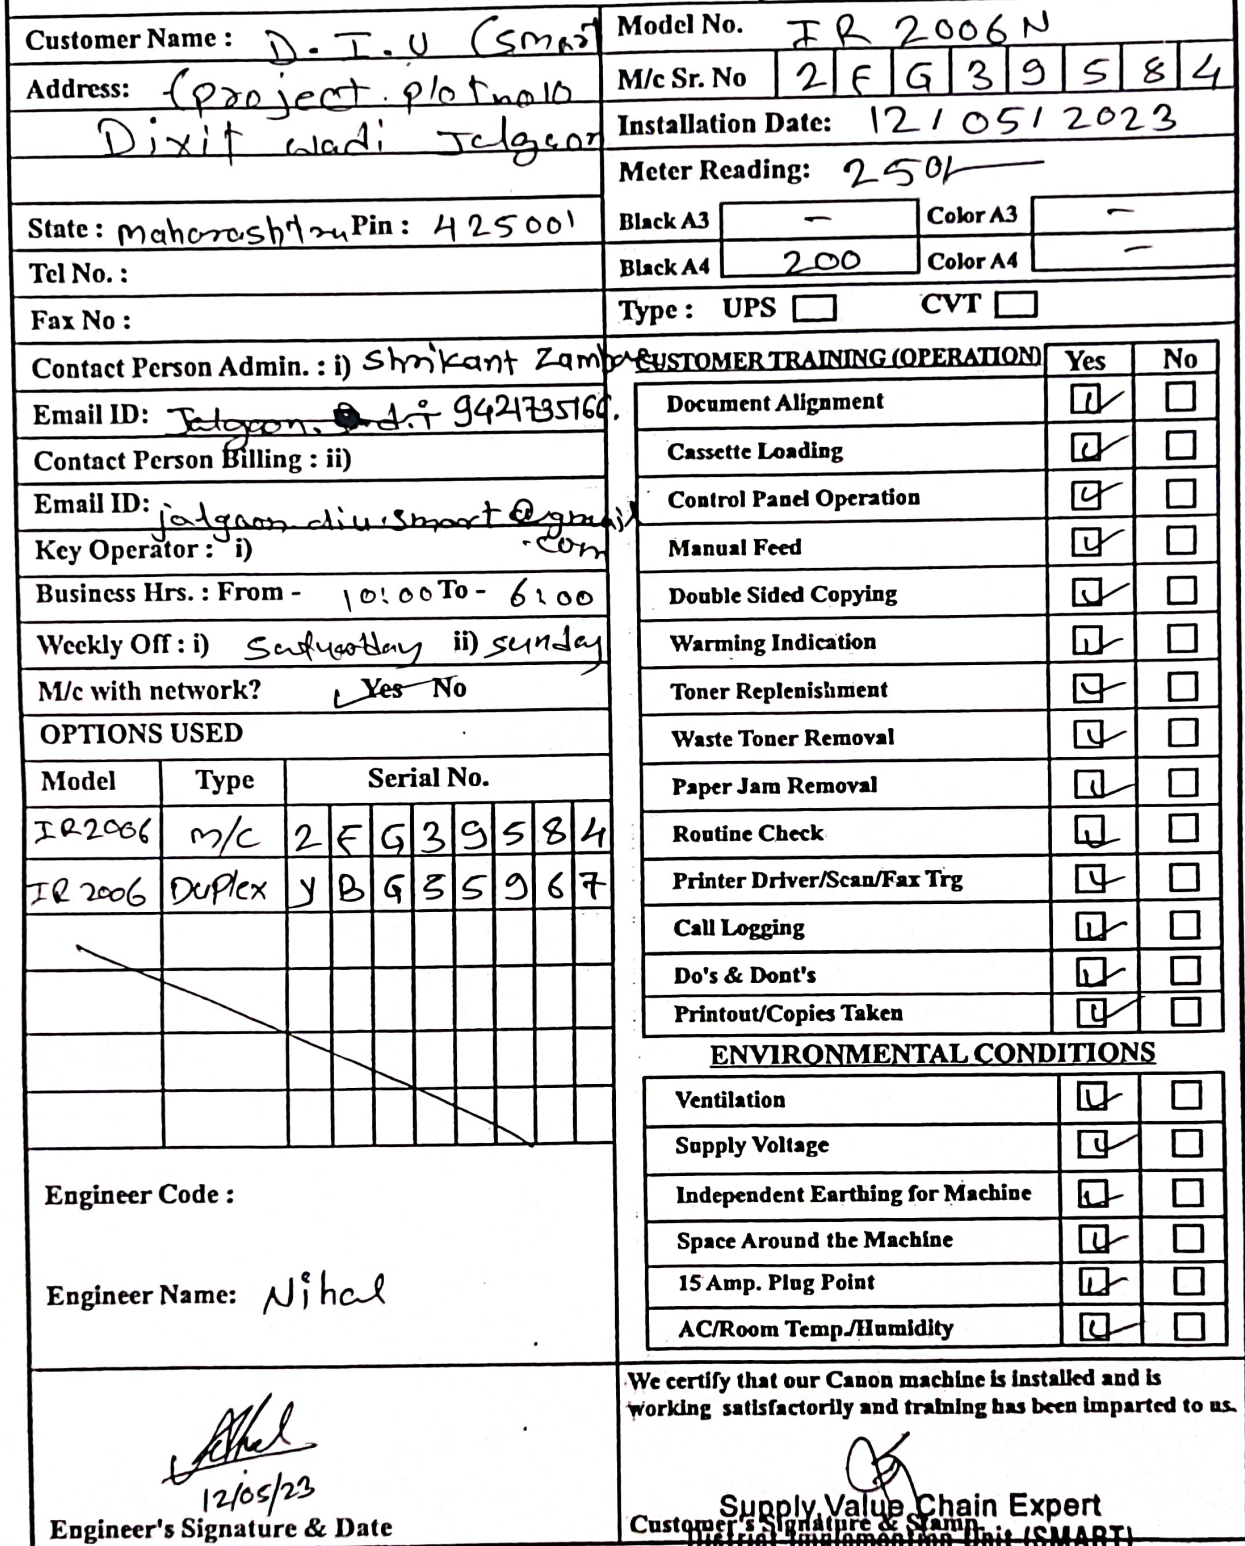 Customer Name : D. I. U (Smart
Address: (project. plot no 10
Dixit wadi Jalgaon
State : Maharashtra Pin : 425001
Tel No. :
Fax No :
Contact Person Admin. : i) Shrikant Zambre
Email ID: Jalgaon. d.i 9421735166.
Contact Person Billing : ii)
Email ID: jalgaon.diu.smart@gmail
.com
Key Operator : i)
Business Hrs. : From - 10:00 To - 6:00
Weekly Off : i) Saturday ii) sunday
M/c with network? ✓ Yes No
OPTIONS USED
Model Type Serial No.
IR2006 m/c 2 F G 3 9 5 8 4
IR 2006 Duplex Y B G 5 5 9 6 7
Engineer Code :
Engineer Name: Nihal
12/05/23
Engineer's Signature & Date
Model No. IR 2006N
M/c Sr. No 2 F G 3 9 5 8 4
Installation Date: 12/05/2023
Meter Reading: 250/-
Black A3 - Color A3 -
Black A4 200 Color A4 -
Type : UPS CVT
CUSTOMER TRAINING (OPERATION) Yes No
Document Alignment
Cassette Loading
Control Panel Operation
Manual Feed
Double Sided Copying
Warming Indication
Toner Replenishment
Waste Toner Removal
Paper Jam Removal
Routine Check
Printer Driver/Scan/Fax Trg
Call Logging
Do's & Dont's
Printout/Copies Taken
ENVIRONMENTAL CONDITIONS
Ventilation
Supply Voltage
Independent Earthing for Machine
Space Around the Machine
15 Amp. Plug Point
AC/Room Temp./Humidity
We certify that our Canon machine is installed and is
working satisfactorily and training has been imparted to us.
Supply Value Chain Expert
Customer's Signature & Stamp
Unit (SMART)